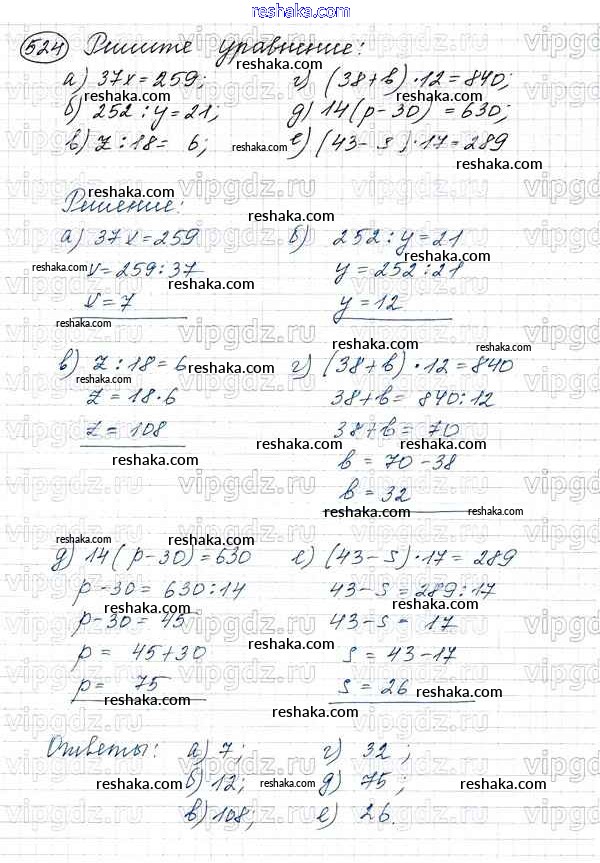 reshaka.com
524 Решите уравнение:
а) 37x = 259; г) (38+b)·12 = 840;
б) 252 : y = 21; д) 14(p-30) = 630;
в) z : 18 = 6; е) (43-s)·17 = 289
Решение:
а) 37x = 259 б) 252 : y = 21
x = 259 : 37 y = 252 : 21
x = 7 y = 12
в) z : 18 = 6 г) (38+b)·12 = 840
z = 18·6 38+b = 840 : 12
z = 108 38+b = 70
b = 70-38
b = 32
д) 14(p-30) = 630 е) (43-s)·17 = 289
p-30 = 630 : 14 43-s = 289 : 17
p-30 = 45 43-s = 17
p = 45+30 s = 43-17
p = 75 s = 26
Ответы: а) 7; г) 32;
б) 12; д) 75;
в) 108; е) 26.
vipgdz.ru